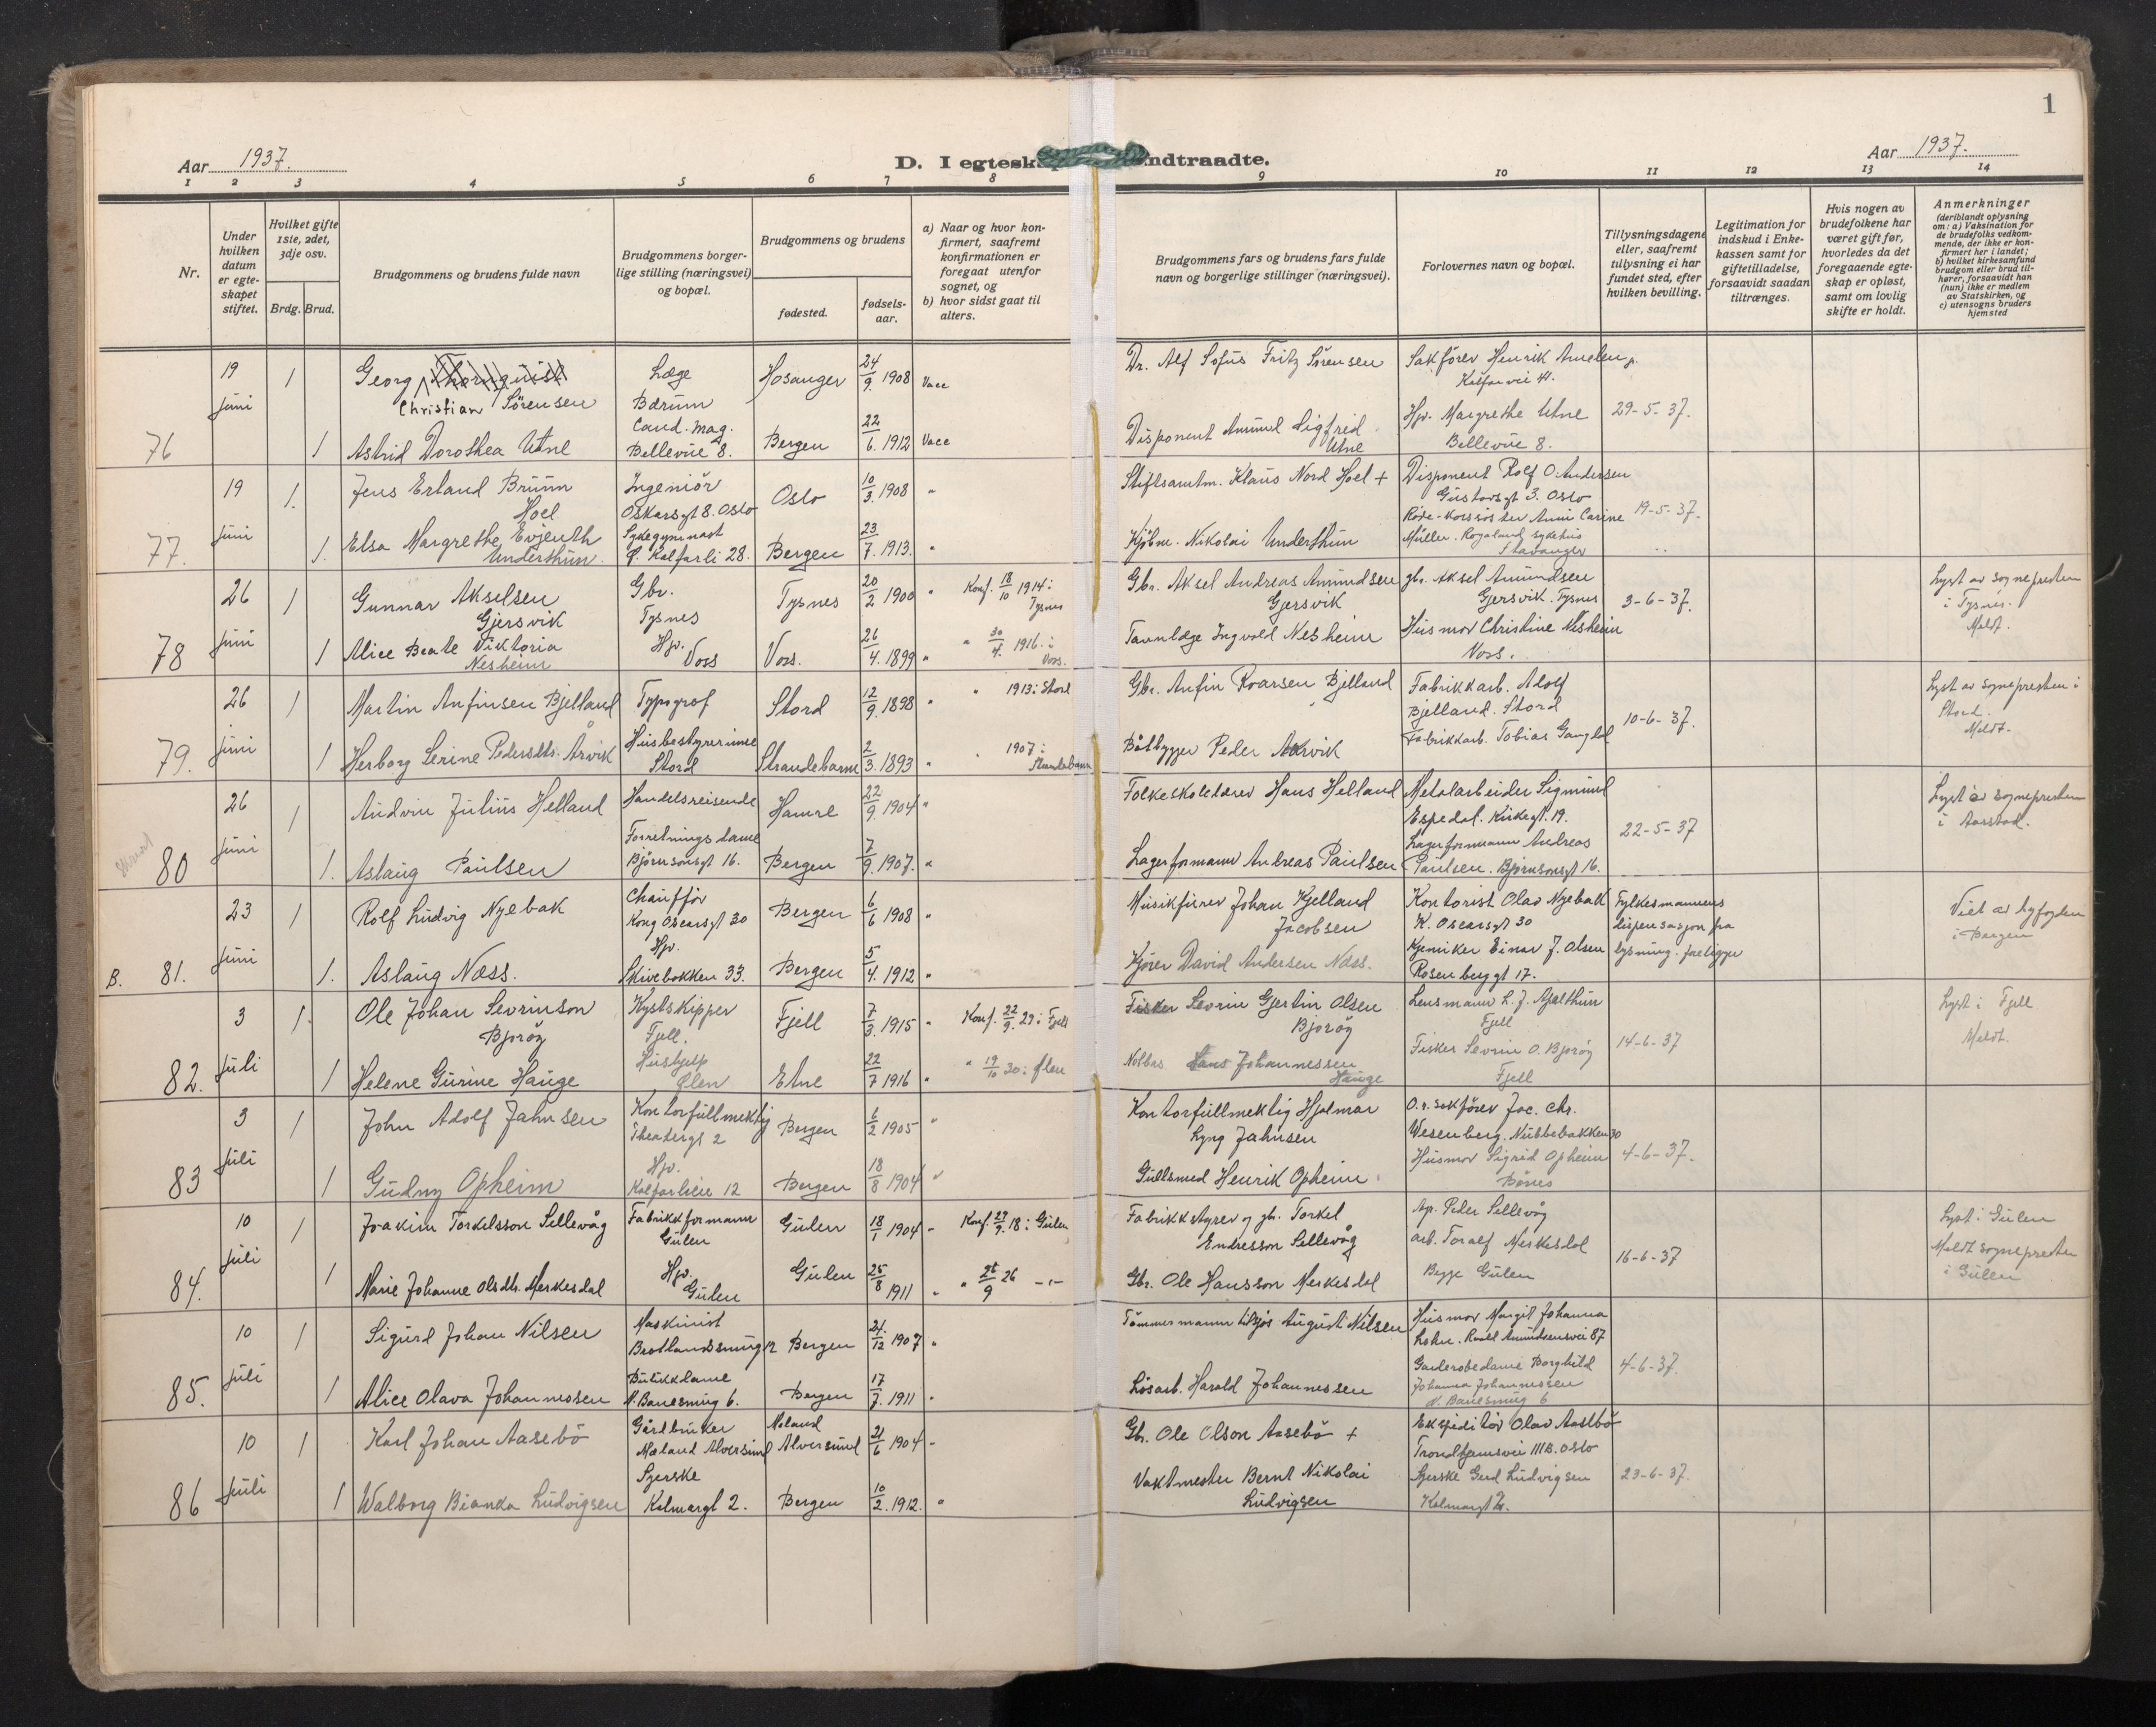 1
Aar 1937.
D. I egtesk
ndtraadte.
Aar 1937.
1 2 3 4 5 6 7 8 9 10 11 12 13 14
Nr.
Under hvilken datum er egteskapet stiftet.
Hvilket gifte 1ste, 2det, 3dje osv.
Brdg. Brud.
Brudgommens og brudens fulde navn
Brudgommens borgerlige stilling (næringsvei) og bopæl.
Brudgommens og brudens
fødested.
fødselsaar.
a) Naar og hvor konfirmert, saafremt konfirmationen er foregaat utenfor sognet, og
b) hvor sidst gaat til alters.
Brudgommens fars og brudens fars fulde navn og borgerlige stillinger (næringsvei).
Forlovernes navn og bopæl.
Tillysningsdagene eller, saafremt tillysning ei har fundet sted, efter hvilken bevilling.
Legitimation for indskud i Enkekassen samt for giftetilladelse, forsaavidt saadan tiltrænges.
Hvis nogen av brudefolkene har været gift før, hvorledes da det foregaaende egteskap er opløst, samt om lovlig skifte er holdt.
Anmerkninger
(deriblandt oplysning om: a) Vaksination for de brudefolks vedkommende, der ikke er konfirmert her i landet;
b) hvilket kirkesamfund brudgom eller brud tilhører, forsaavidt han (hun) ikke er medlem av Statskirken, og
c) utensogns bruders hjemsted
76
19 juni
1 Georg Thornquist Christian Sörensen
Læge Bærum
Hosanger 24/9. 1908 Vacc
Dr. Alf Sofus Fritz Sörensen
Sakförer Henrik Ameln jr. Kalfarvei 41.
1 Astrid Dorothea Utne
Cand. mag. Bellevue 8.
Bergen 22/6. 1912 Vacc
Disponent Amund Sigfred Utne
Hjv. Margrethe Utne Bellevue 8.
29-5-37.
77.
19 juni
1. Jens Erland Bruun Hoel
Ingeniör Oskarsgt 8. Oslo
Oslo 10/3. 1908 "
Stiftsamtm. Klaus Nord Hoel +
Disponent Rolf O. Andersen Gustavsgt 3. Oslo
1. Elsa Margrethe Evjenth Underthun
Sykegymnast Ø. Kalfarli 28.
Bergen 23/7. 1913. "
Kjöbm. Nikolai Underthun
Röde-Korssöster Anni Carine Müller. Rogaland sykehus Stavanger
19-5-37.
78
26 juni
1 Gunnar Akselsen Gjersvik
Gbr. Tysnes
Tysnes 20/2 1900 " Konf. 18/10 1914 i Tysnes
Gbr. Aksel Andreas Amundsen Gjersvik
gbr. Aksel Amundsen Gjersvik. Tysnes
1 Alice Beate Viktoria Nesheim
Hjv. Voss
Voss. 26/4. 1899 " " 30/4. 1916. i Voss.
Tannlæge Ingvald Nesheim
Husmor Christine Nesheim Voss.
3-6-37.
Lyst av sognepresten i Tysnes. Meldt.
79.
26 juni
1 Martin Anfinsen Bjelland
Typograf
Stord 12/9. 1898 " " 1913 i Stord
Gbr. Anfin Roarsen Bjelland
Fabrikkarb. Adolf Bjelland. Stord
1 Herborg Serine Pedersdtr. Arvik
Husbestyrerinne Stord
Strandebarm 2/3. 1893 " " 1907 i Strandebarm
Båtbygger Peder Arvik
Fabrikkarb. Tobias
10-6-37.
Lyst av sognepresten i Stord. Meldt.
80
26 juni
1 Audvin Julius Helland
Handelsreisende
Hamre 22/9. 1904 "
Folkeskolelærer Hans Helland
Metalarbeider Sigmund Espedal. Kirkegt. 19.
1. Aslaug Paulsen
Forretningsdame Björnsonsgt 16.
Bergen 7/9. 1907. "
Lagerformann Andreas Paulsen
Lagerformann Andreas Paulsen. Björnsonsgt 16.
22-5-37
Lyst av sognepresten i Aarstad.
B. 81.
23 juni
1 Rolf Ludvig Nyebak
Chauffför Kong Oscarsgt 30
Bergen 6/6 1908 "
Musikfurer Johan Kjelland Jacobsen
Kontorist Olav Nyebak K. Oscarsgt 30
1. Aslaug Næss.
Hjv. Skivebakken 33.
Bergen 5/4. 1912 "
Kjörer David Andersen Næss.
Kjemiker Einar J. Olsen Rosenberggt 17.
Fylkesmannens dispensasjon fra lysning. foreligger
Viet av byfogden i Bergen
82.
3 juli
1. Ole Johan Sevrinson Bjoröy
Kystskipper Fjell.
Fjell 7/3. 1915 " Konf. 22/9. 29 i Fjell
Fisker Sevrin Gjertin Olsen Bjoröy
Lensmann L. J. Apelthun Fjell
1 Helene Gurine Hauge
Hushjelp Ølen
Etne 22/7 1916 " " 19/10 30 i Ølen
Notbas Johannessen Hauge
Fisker Sevrin O. Bjoröy Fjell
14-6-37
Lyst i Fjell Meldt.
83
3 juli
1 John Adolf Jahnsen
Kontorfullmektig Theatergt 2
Bergen 6/2 1905 "
Kontorfullmektig Hjalmar Lyng Jahnsen
O.r. sakförer Jac. Chr. Wesenberg. Nubbebakken 30
1 Gudny Opheim
Hjv. Kalfarveien 12
Bergen 18/8 1904 "
Gullsmed Henrik Opheim.
Husmor Sigrid Opheim Bönes
4-6-37.
84.
10 juli
1 Joakim Torkelsson Sellevåg
Fabrikkformann Gulen
Gulen 18/1 1904 " Konf. 29/9. 18 i Gulen
Fabrikkstyrer og gbr. Torkel Endresson Sellevåg
Agr. Peder Sellevåg
1 Marie Johanne Olsdtr. Merkesdal
Hjv. Gulen
Gulen 25/8 1911 " " 26/9 26 -"-
Gbr. Ole Hansson Merkesdal
arb. Toralf Merkesdal
Begge Gulen
16-6-37
Lyst i Gulen Meldt sognepresten i Gulen
85.
10 juli
1 Sigurd Johan Nilsen
Maskinist
Bergen 21/12 1907 "
Tömmermann tilsjös August Nilsen
Husmor Margit Johanna Roald Amundsensvei 87
1 Alice Olava Johannessen
Butikkdame N. Banesmug 6.
Bergen 17/7 1911 "
Lösarb. Harald Johannessen
Garderobedame Borghild Johanna Johannessen N. Banesmug 6
4-6-37.
86
10 juli
1 Karl Johan Aasebö
Gårdbruker Mæland Alversund
Mæland Alversund 21/6 1904 "
Gbr. Ole Olson Aasebö +
Ekspeditör Olav Aasebö Trondhjemsvei 111B. Oslo
1 Walborg Bianka Ludvigsen
Syerske Kalmargt 2.
Bergen 10/2. 1912. "
Vaktmester Bernt Nikolai Ludvigsen
Syerske Gerd Ludvigsen Kalmargt 2.
23-6-37.